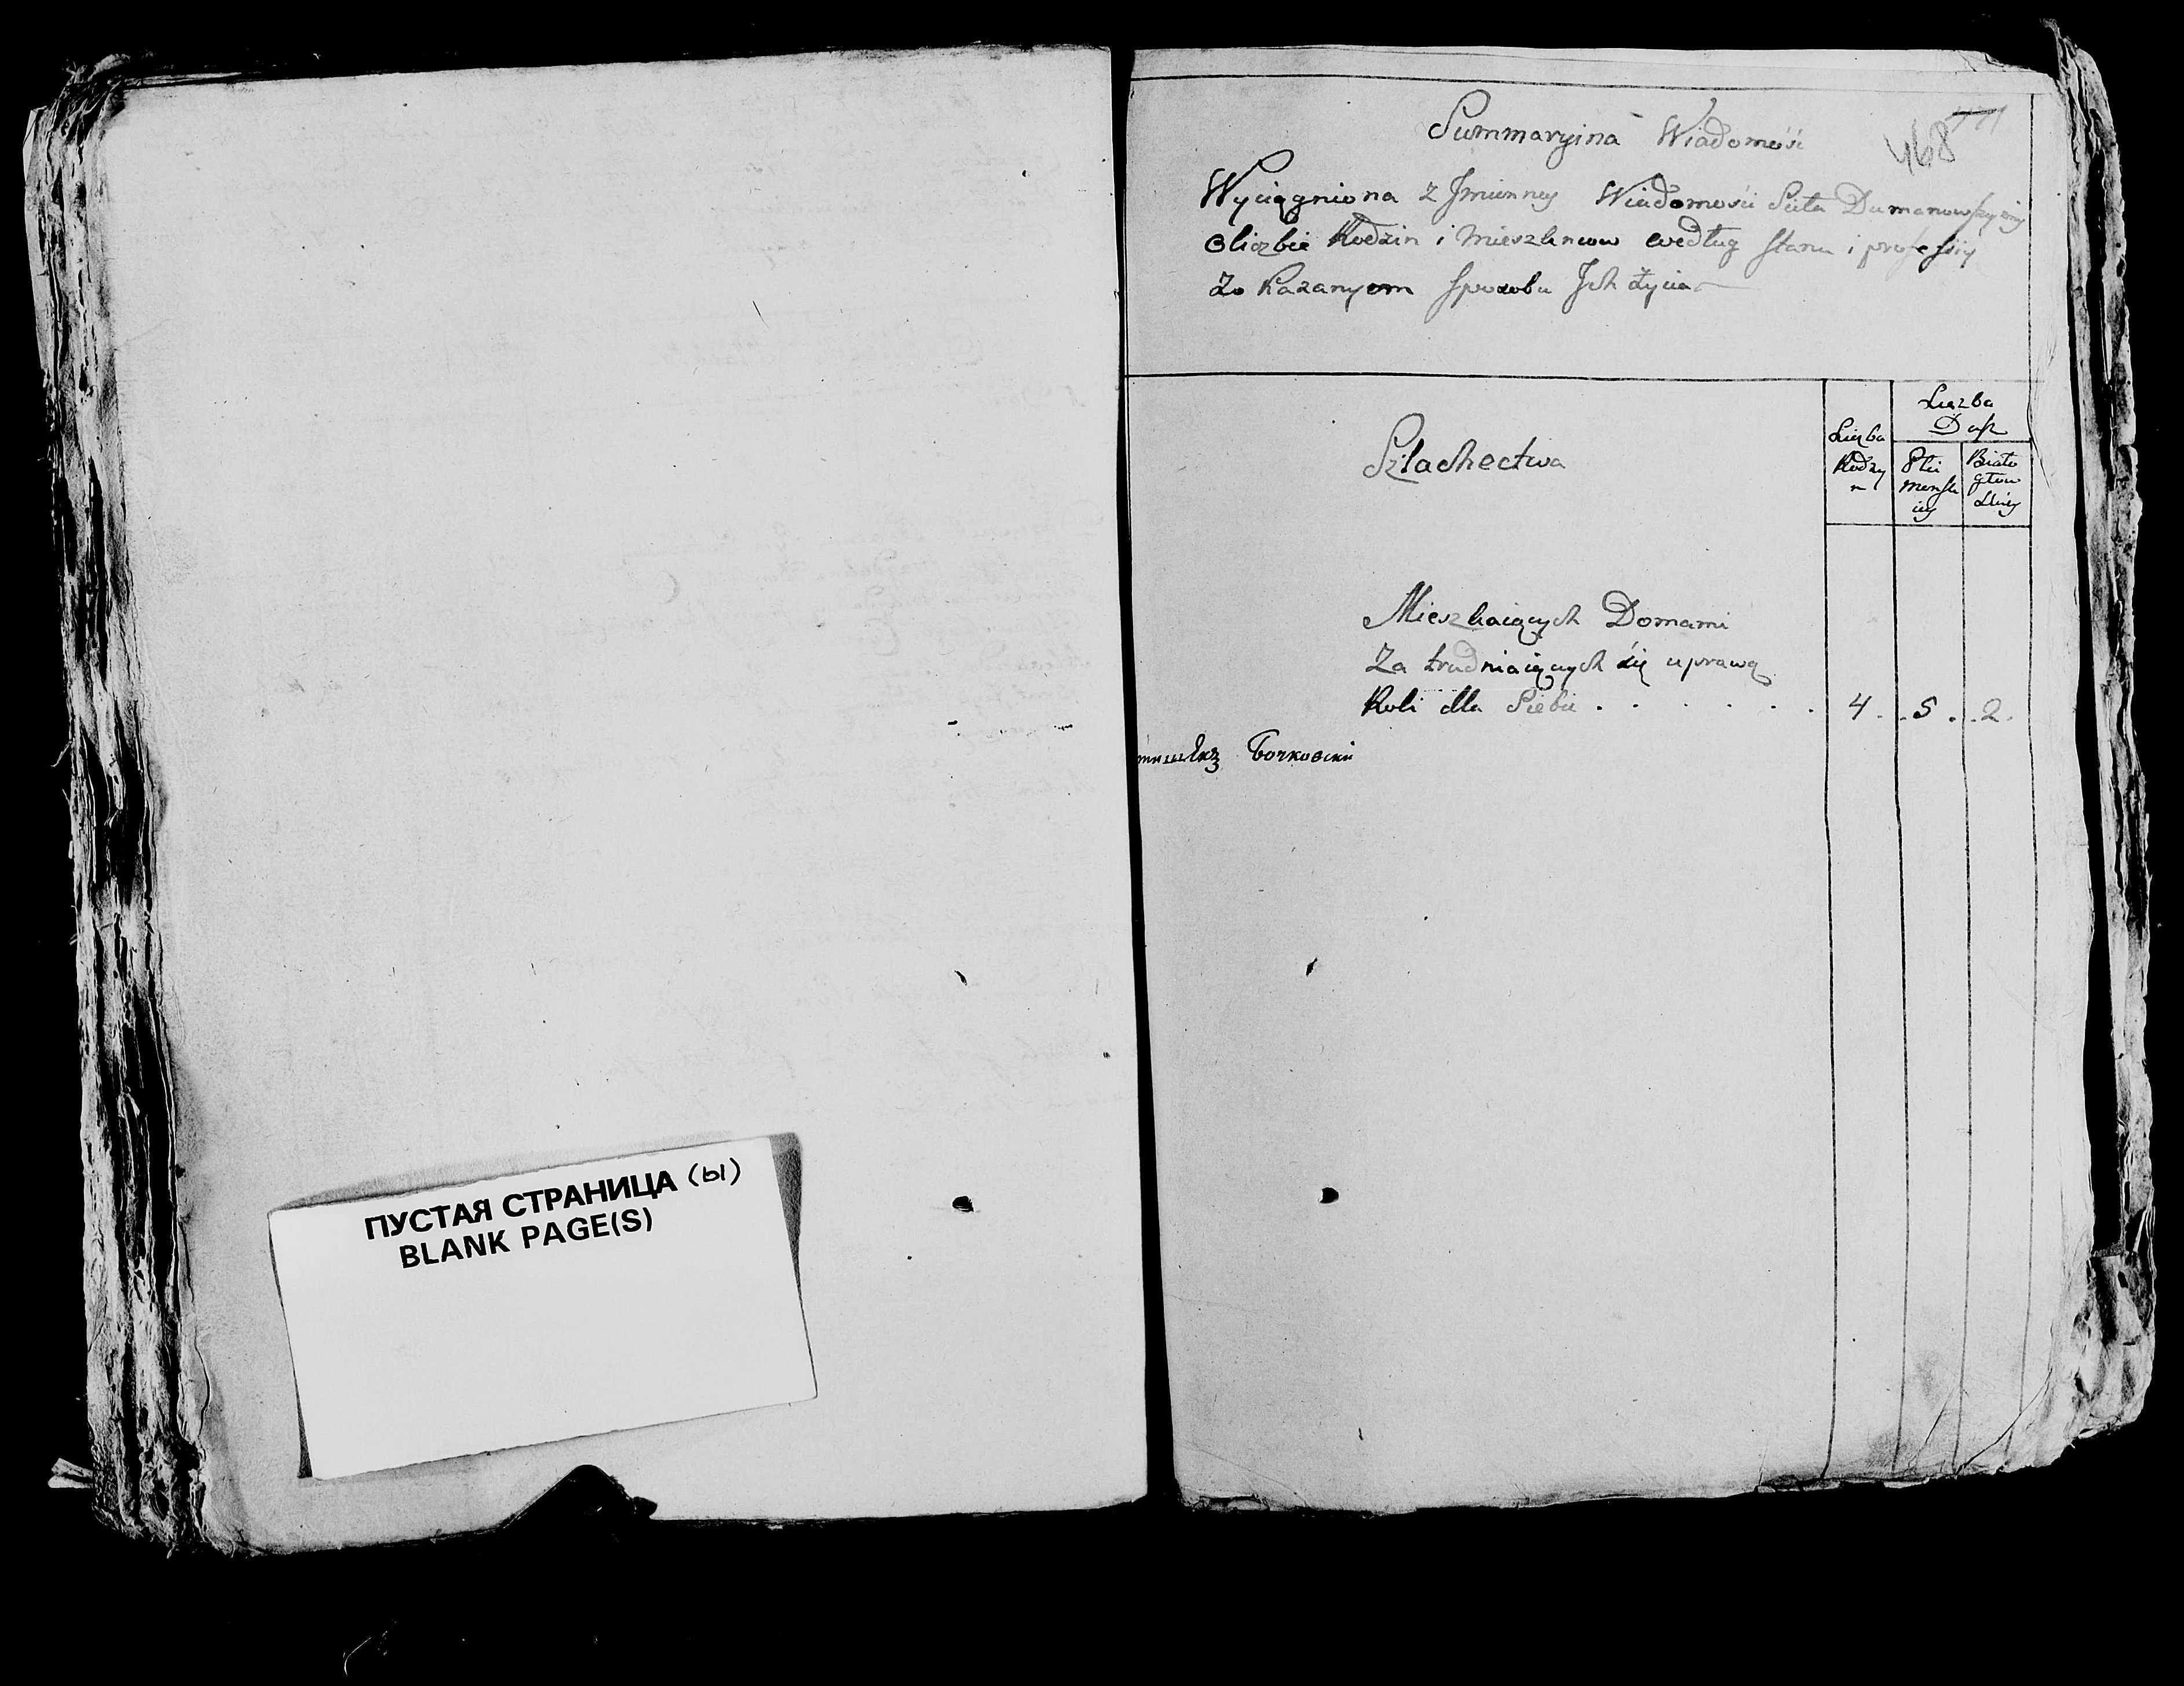 ПУСТАЯ СТРАНИЦА (ы)
BLANK PAGE(S)
468
Summaryina Wiadomość
Wyciągniona z Jmienney Wiadomości Sioła Dumanowszczyzny
O liczbie Rodzin i Mieszkancow według stanu i professij
Zo kazanyem sposobu Jch życia
Szlachectwa
Liczba
Rodzy
n
Liczba
Dusz
Płci
mensk
iey
Biało
głow
skiey
Mieszkaiących Domami
Za trudniaiących się uprawą
Roli dla Siebie . . . . . . 4 . . 5 . . 2 .
Бочковскій